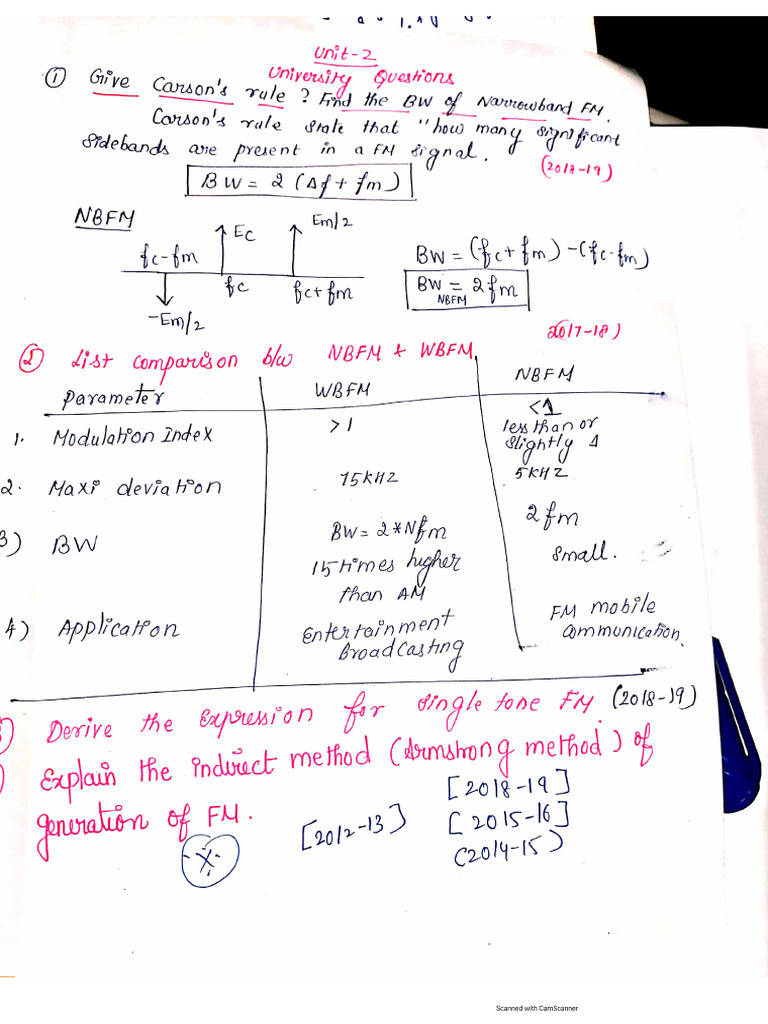 Unit-2
University Questions
① Give Carson's rule ? Find the BW of Narrowband FM.
Carson's rule state that "how many significant
sidebands are present in a FM signal.
(2018-19)
BW = 2 (Δf + fm)
NBFM
Ec
Em/2
fc-fm
fc
fc+fm
-Em/2
BW = (fc+fm) -(fc-fm)
BW = 2fm
NBFM
2017-18)
② List comparison b/w NBFM + WBFM
Parameter WBFM NBFM
1. Modulation Index >1 <1
less than or
slightly 1
2. Maxi deviation 75KHZ 5KHZ
3) BW BW = 2*Nfm 2fm
15 times higher small.
than AM
4) Application Entertainment FM mobile
Broadcasting communication
) Derive the expression for single tone FM (2018-19)
) Explain the indirect method (Armstrong method) of
generation of FM.
[2012-13]
[2018-19]
[2015-16]
(2014-15)
Scanned with CamScanner